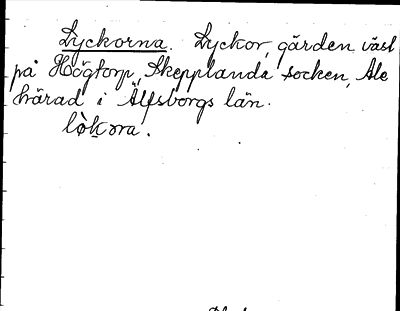 Lyckorna. Lyckor, gärden väst
på Högtorp, Skepplanda socken, Ale
härad i Älfsborgs län.
lø̀kora.